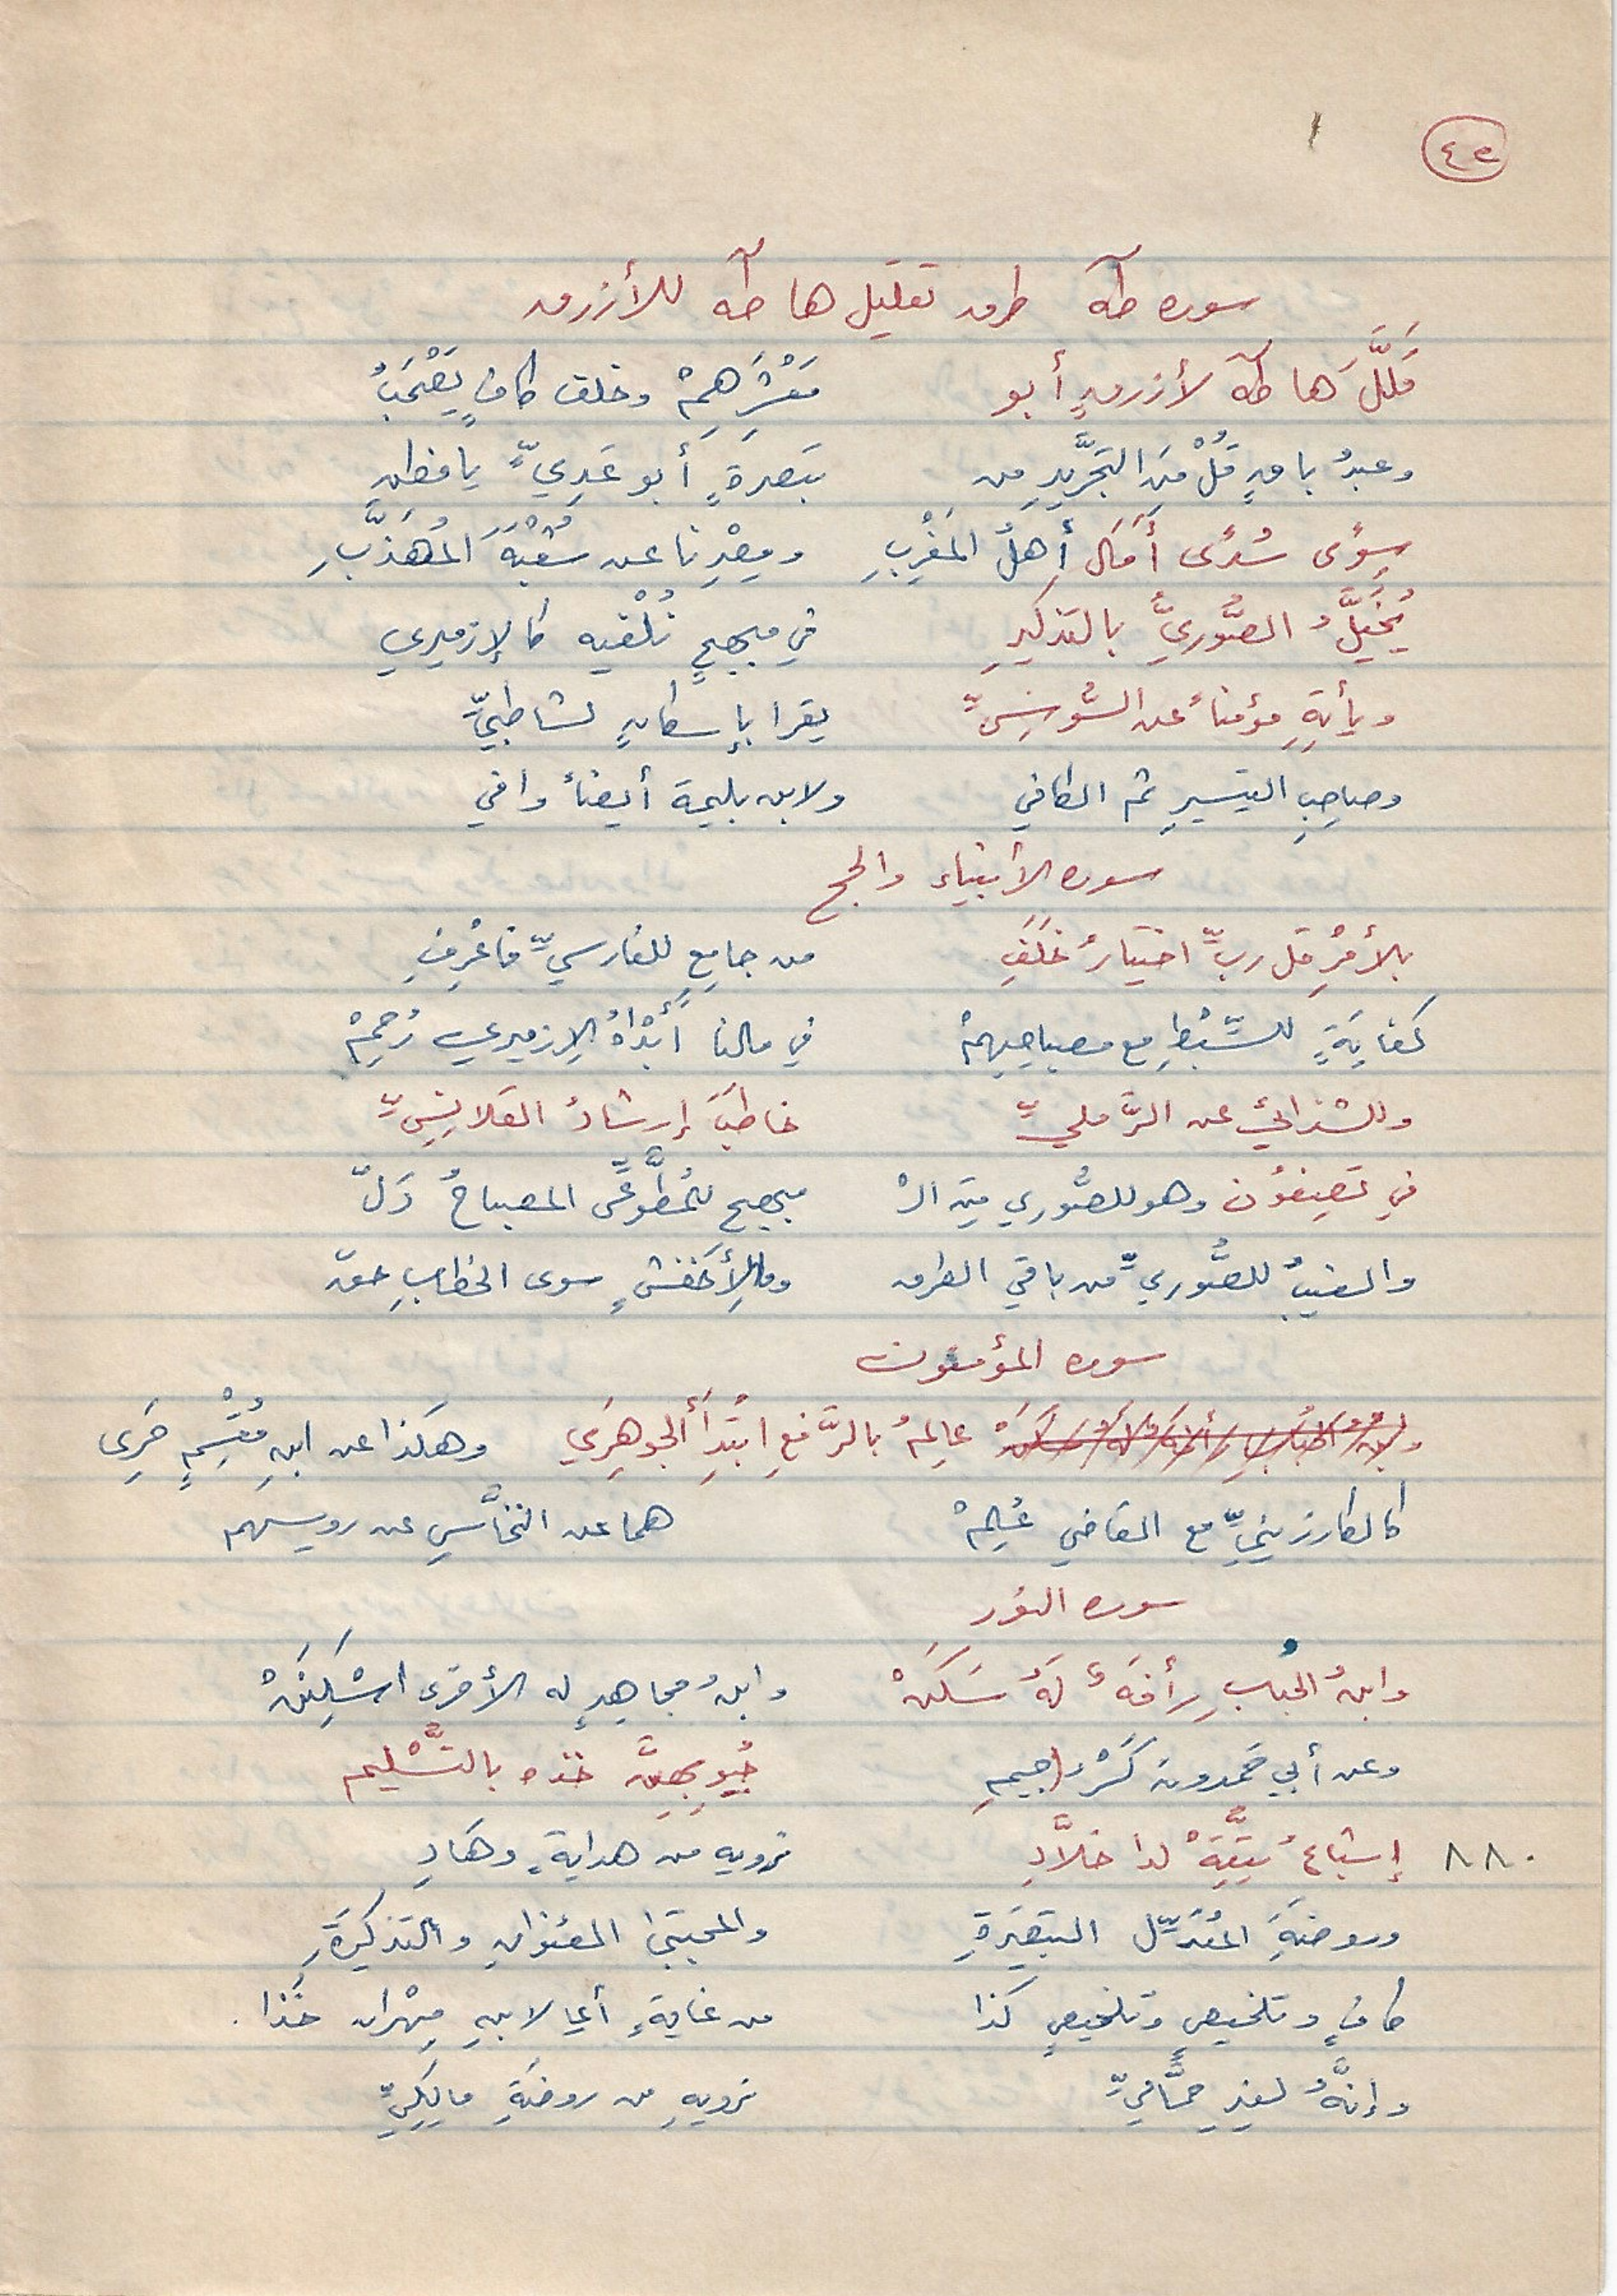 ٤٥
سورة طه طرق تقليل ها طه للأزرق
قَلَّلَ ها طه لأزرقٍ أبو مَعْشَرِهِمْ وخلف كافٍ يَصْحَبُ
وعبدُ باقٍ قُلْ مِنَ التَجْرِيدِ من بَصرةٍ أبو عَدِيٍّ يا فطن
سِوًى سُدًى أَمَالَ أهلُ المَغْرِبِ ومِصْرِنا عن شُعْبَةَ المُهَذَّبِ
يُخَيَّلُ الصُّوريُّ بالتذكيرِ في مبهجٍ نُلْفيه كالإزميري
ويأتِهِ مؤمناً عن السُّوسِيِّ يقرا بإسكانٍ لشاطبيٍّ
وصاحِبِ التيسيرِ ثم الكافي ولابن بليمة أيضاً وافي
سورة الأنبياء والحج
بالأمْرِ قل ربِّ اختيارُ خَلَفِ من جامِعٍ للفارسيِّ فاعْرِفِ
كفايَةٍ للسِّبْطِ مع مصباحِهِمْ في مالنا أَبْدَاهُ الإزميري رُحِمْ
وللشذائي عن الرَّمليِّ خاطَبَ إرشادُ القلانِسِيِّ
في تَصِفُون وهو للصُّوري مِنَ الْ مبهج للمُطَّوِّعِّى المصباحُ دَلّ
والغيبُ للصُّوريِّ من باقي الطرق وما لِأَخفشٍ سوى الخطابِ حقّ
سورة المؤمنون
عالِمُ بالرَّفعِ ابْتِدَا الجوهَرِي وهكذا عن ابنِ مِقْسَمٍ حَرِى
كالكارزينيِّ مع القاضي عُلِمْ هما عن النخَّاسِ عن رويسهم
سورة النور
وابنُ الحُبابِ رأفَةٌ لَهُ سَكَنْ وابنُ مجاهِدٍ له الأخرى اسْكِنَنْ
وعن أبي حَمدون كَسْرُ الجيمِ جُيُوبِهِنَّ خذه بالتَّسْليم
٨٨٠ إشباعُ يَتَّقِهْ لدا خلَّادِ نرويه من هدايةٍ وهَادِ
وروضَةِ المُعَدِّل التبصِرَةِ والمجتبى العنوانِ والتذكِرَةِ
كافٍ وتلخيصٍ وتلخيصٍ كذا من غايةٍ أي لابنِ مِهْران خُذا.
وإنَّهُ لغير حمَّاميِّ نرويهِ من روضَةِ مالِكِيِّ